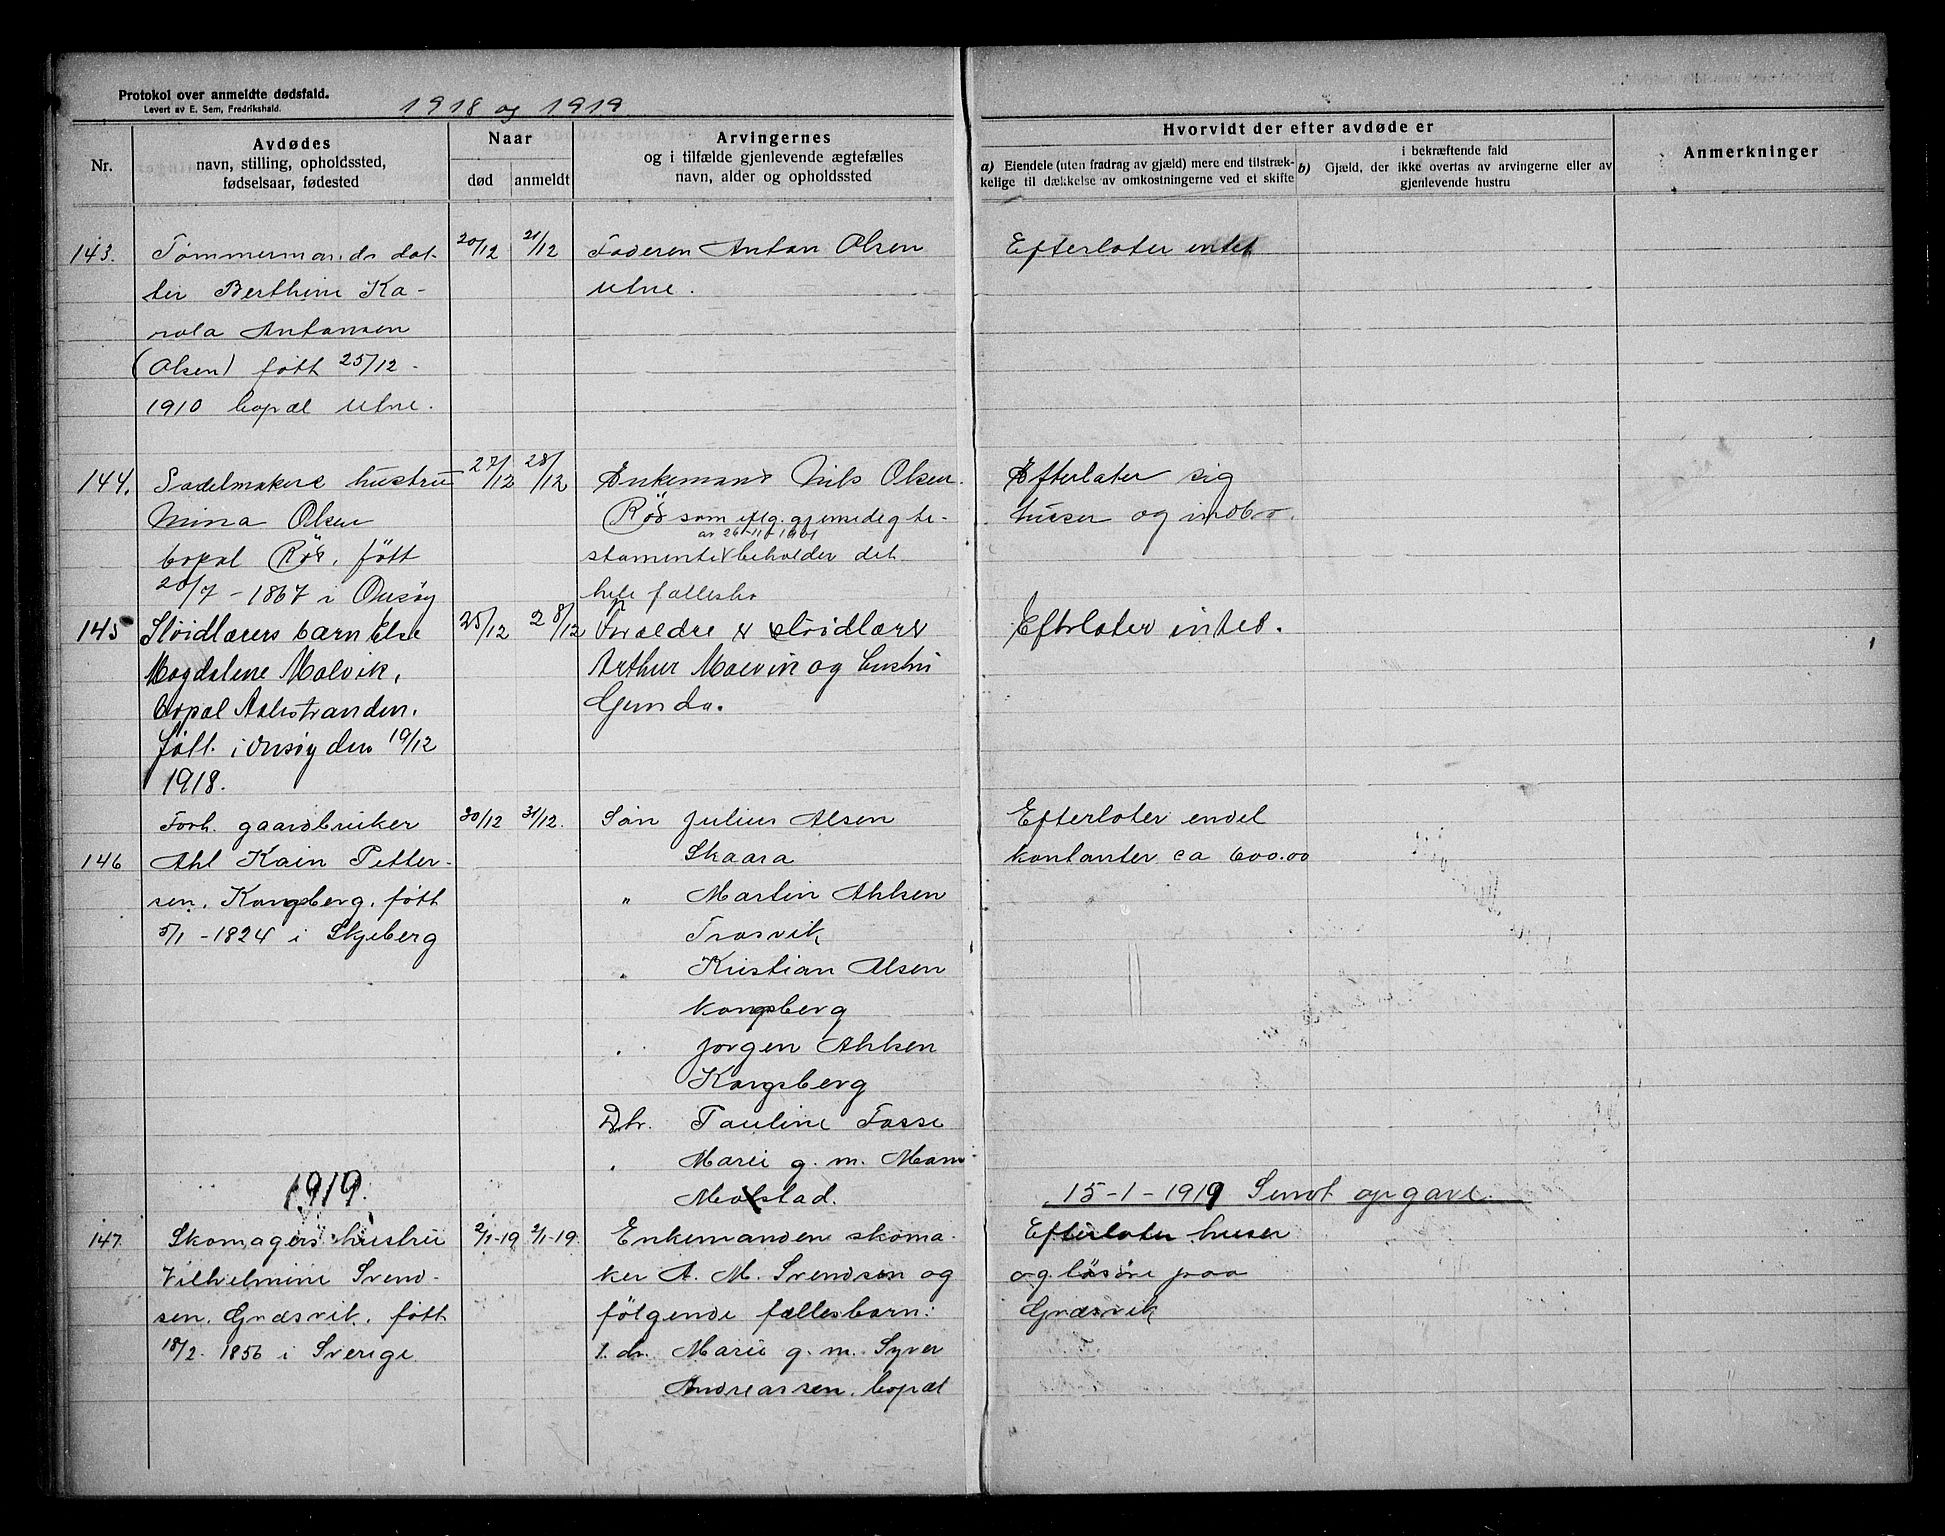 Protokol over anmeldte dødsfald.
Levert av E. Sem, Fredrikshald.
1918 og 1919.
Nr.
Avdødes
navn, stilling, opholdssted,
fødselsaar, fødested
Naar
død
anmeldt
Arvingernes
og i tilfælde gjenlevende ægtefælles
navn, alder og opholdssted
Hvorvidt der efter avdøde er
a) Eiendele (uten fradrag av gjæld) mere end tilstræk-
kelige til dækkelse av omkostningerne ved et skifte
i bekræftende fald
b) Gjæld, der ikke overtas av arvingerne eller av
gjenlevende hustru
Anmerkninger
143.
Tømmermands dat-
ter Berthine Ka-
rola Antonsen
(Olsen) født 25/12 -
1910 bopæl Utne.
20/12
21/12
Faderen Anton Olsen
Utne.
Efterlater intet
144.
Sadelmakers hustru
Mina Olsen
bopæl Røs, født
20/7 - 1867 i Onsøy
27/12
28/12
Enkemand Nils Olsen
Røs som iflg. gjensidig te-
av 26-11-1901
stamente beholder det
hele fællesbo
Efterlater sig
huser og indbo.
145
Sløidlærers barn Else
Magdalene Malvik,
bopæl Aalestranden.
født i Onsøy den 10/12
1918.
25/12
28/12
Forældre sløidlærer
Arthur Malvik og hustru
Gunda.
Efterlater intet.
146
Forh. gaardbruker
Ahl Kain Petter-
sen, Kongsberg, født
5/1 - 1824 i Skjeberg
30/12
31/12.
Søn Julius Alsen
Skaara
" Martin Ahlsen
Trosvik
" Kristian Alsen
Kongsberg
" Jørgen Ahlsen
Kongsberg
Dtr. Pauline Fosse
" Marie g. m.
Molstad.
Efterlater endel
kontanter ca 600.00
1919.
15-1-1919 Sendt opgave.
147.
Skomagers hustru
Vilhelmine Svend-
sen, Græsvik, født
18/2. 1856 i Sverige
2/1-19
2/1-19.
Enkemanden skoma-
ker A. M. Svendsen og
følgende fællesbarn:
1. dr. Marie g. m. Syver
Andreassen, bopæl
Efterlater huser
og løsøre paa
Græsvik